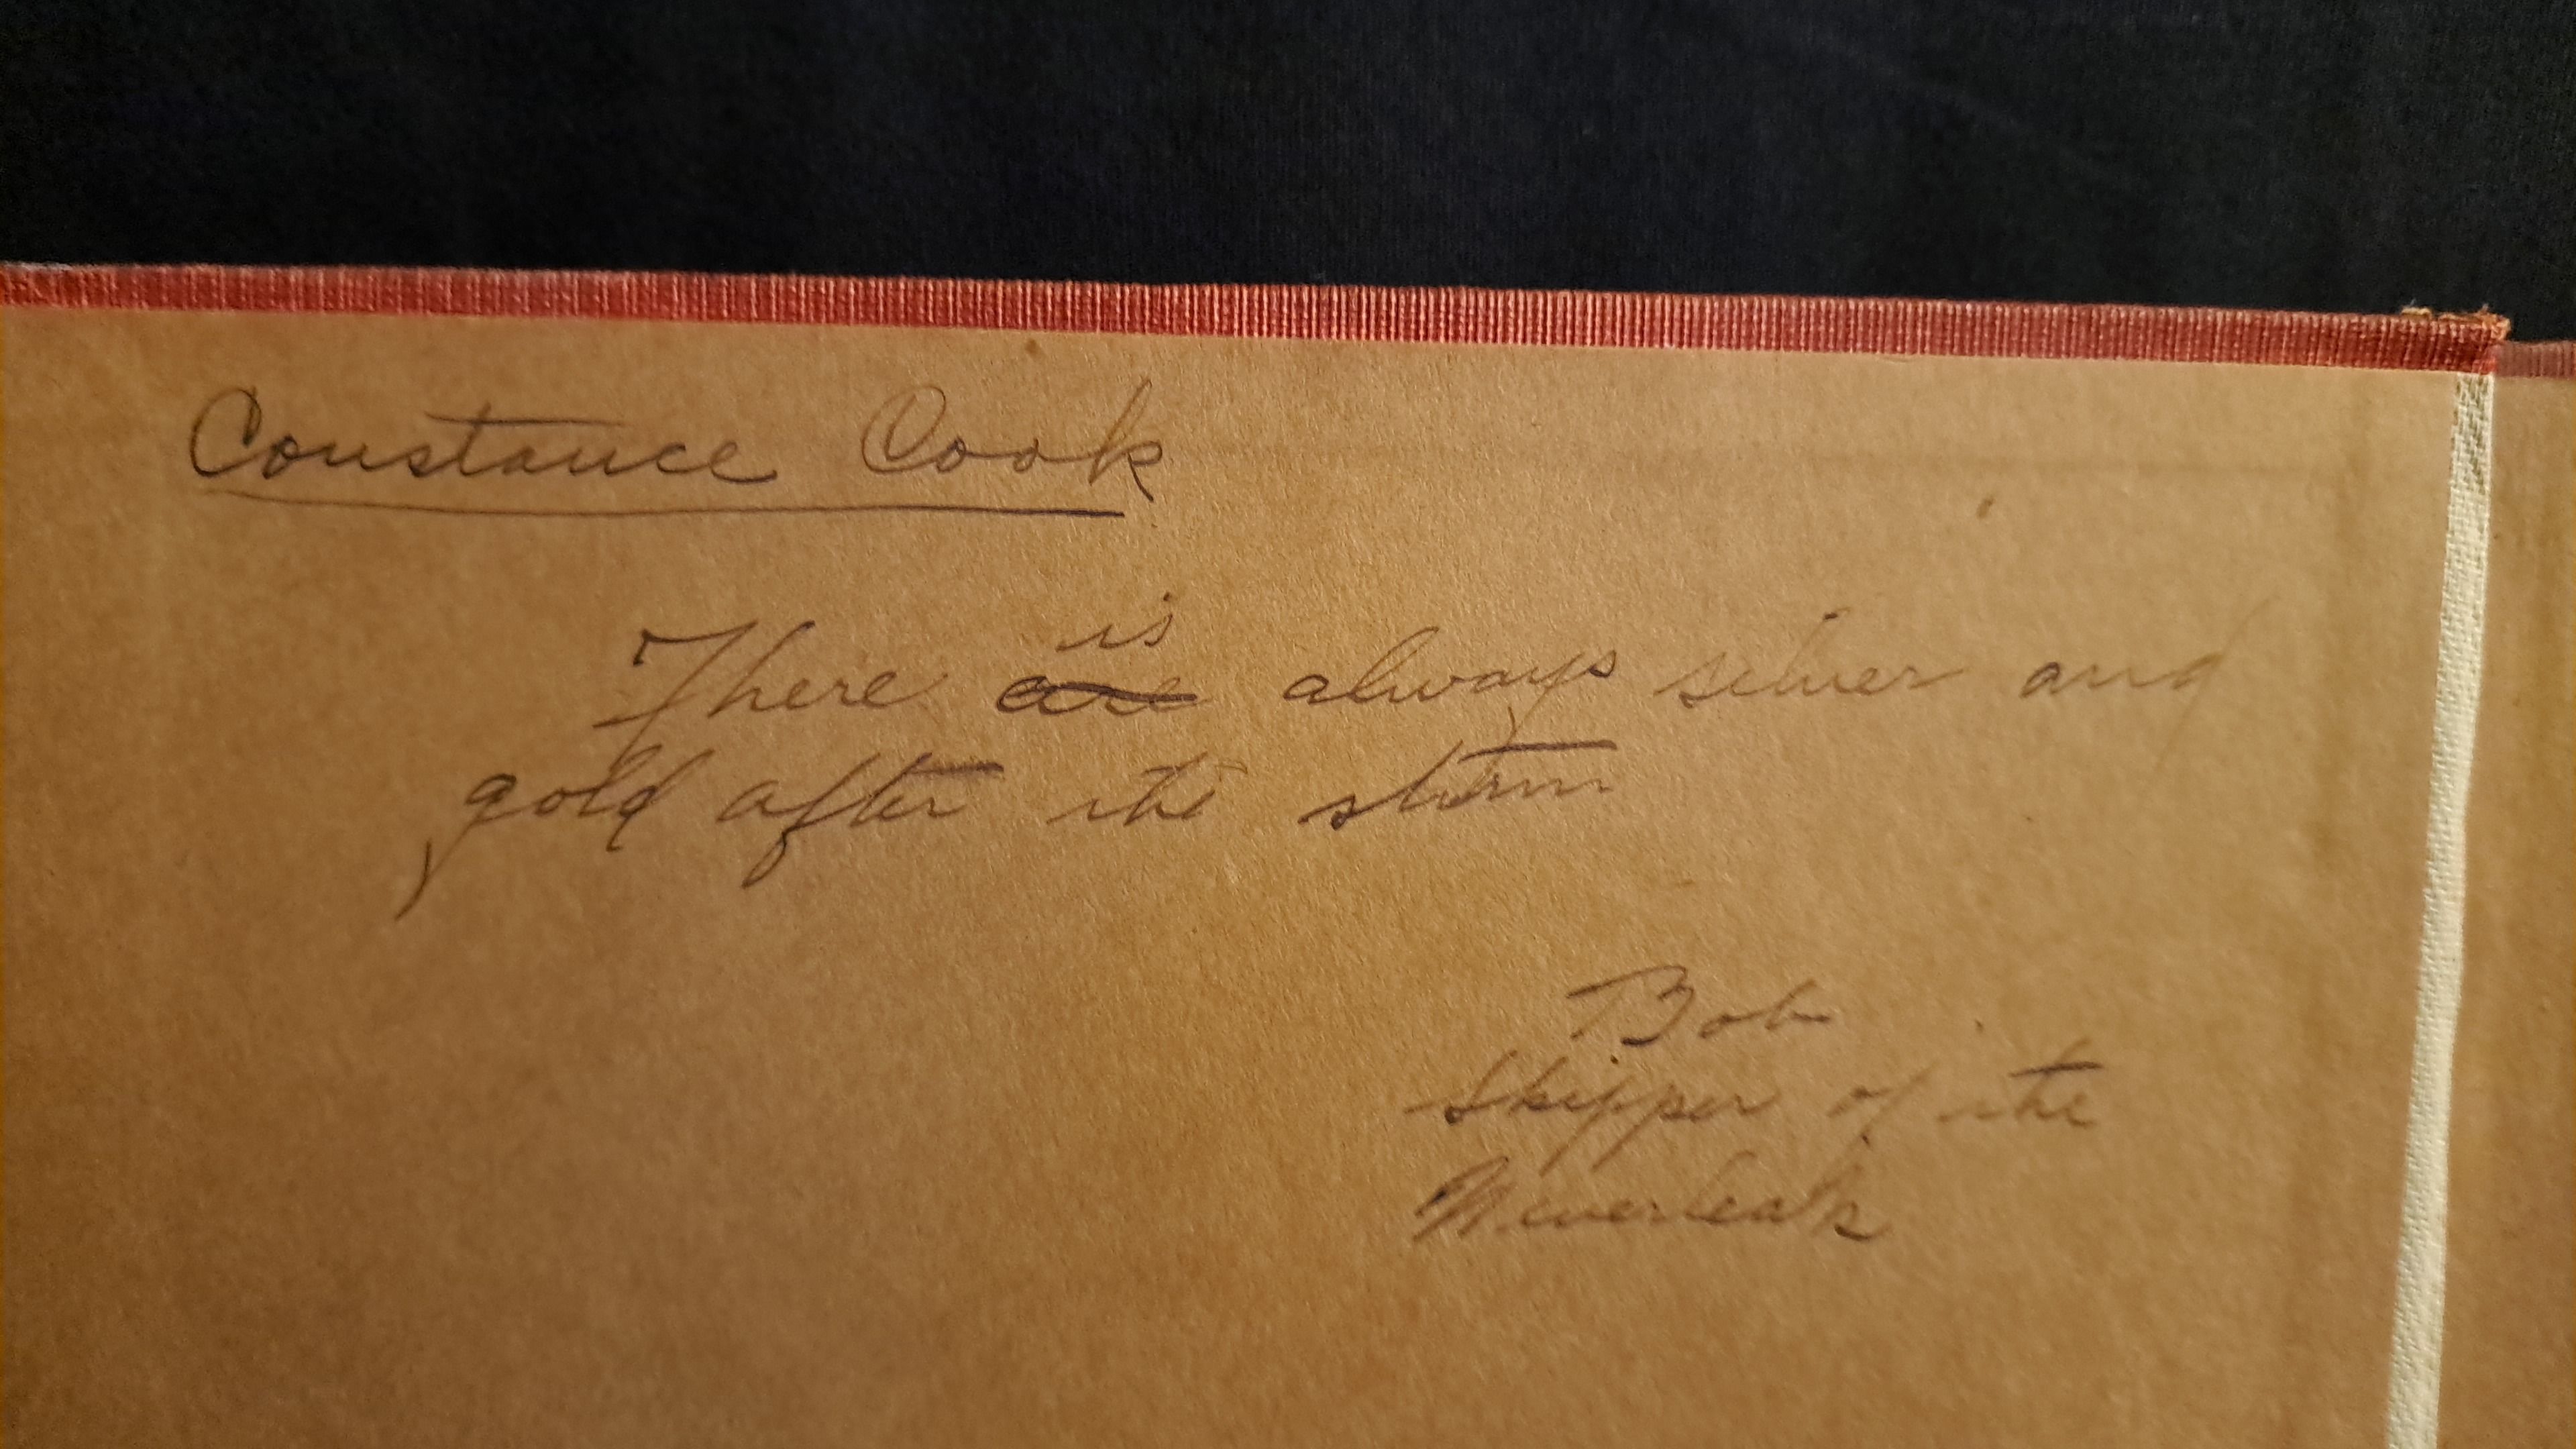 Constance Cook
is
There are always silver and
gold after the storm
Bob
Skipper of the
Neverleak